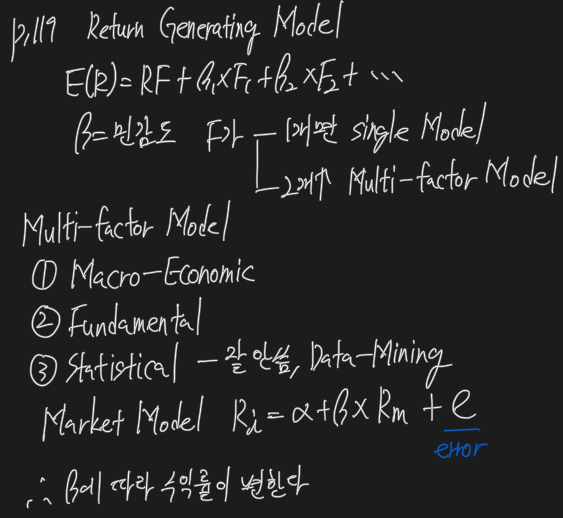 p.119 Return Generating Model
E(R)= RF + β₁×F₁ + β₂×F₂ + ⋯
β=민감도 F가 ─ 1개면 single Model
└ 2개↑ Multi-factor Model
Multi-factor Model
① Macro-Economic
② Fundamental
③ Statistical - 잘 안씀, Data-Mining
Market Model Ri = α+β× Rm + e
error
∴ β에 따라 수익률이 변한다